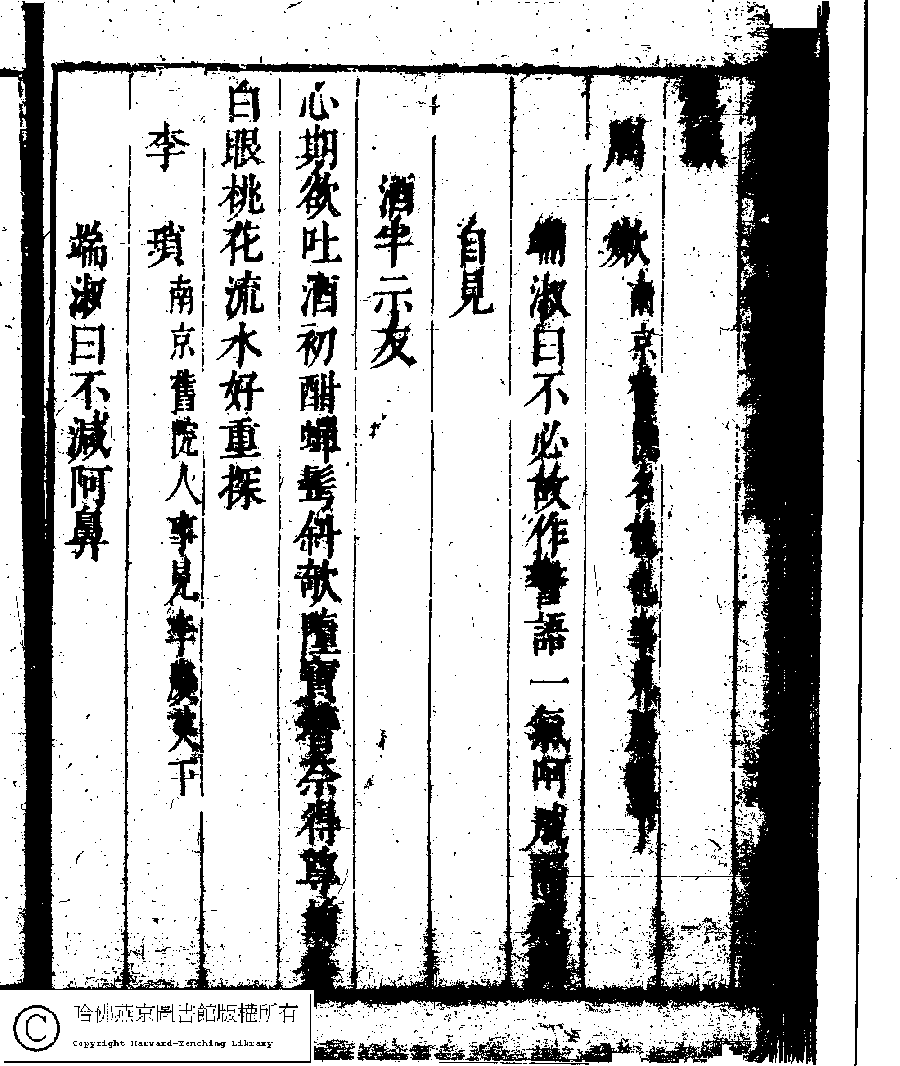 嫩 南京舊院名
端淑曰不必故作警語一氣呵成
自見
酒半示友
心期欲吐酒初酣蟬髩斜欹墮寶簪奈得尊前
白眼桃花流水好重探
李 瑣 南京舊院人事見李下
端淑曰不減阿鼻
哈佛燕京圖書館版權所有
Copyright Harvard-Yenching Library